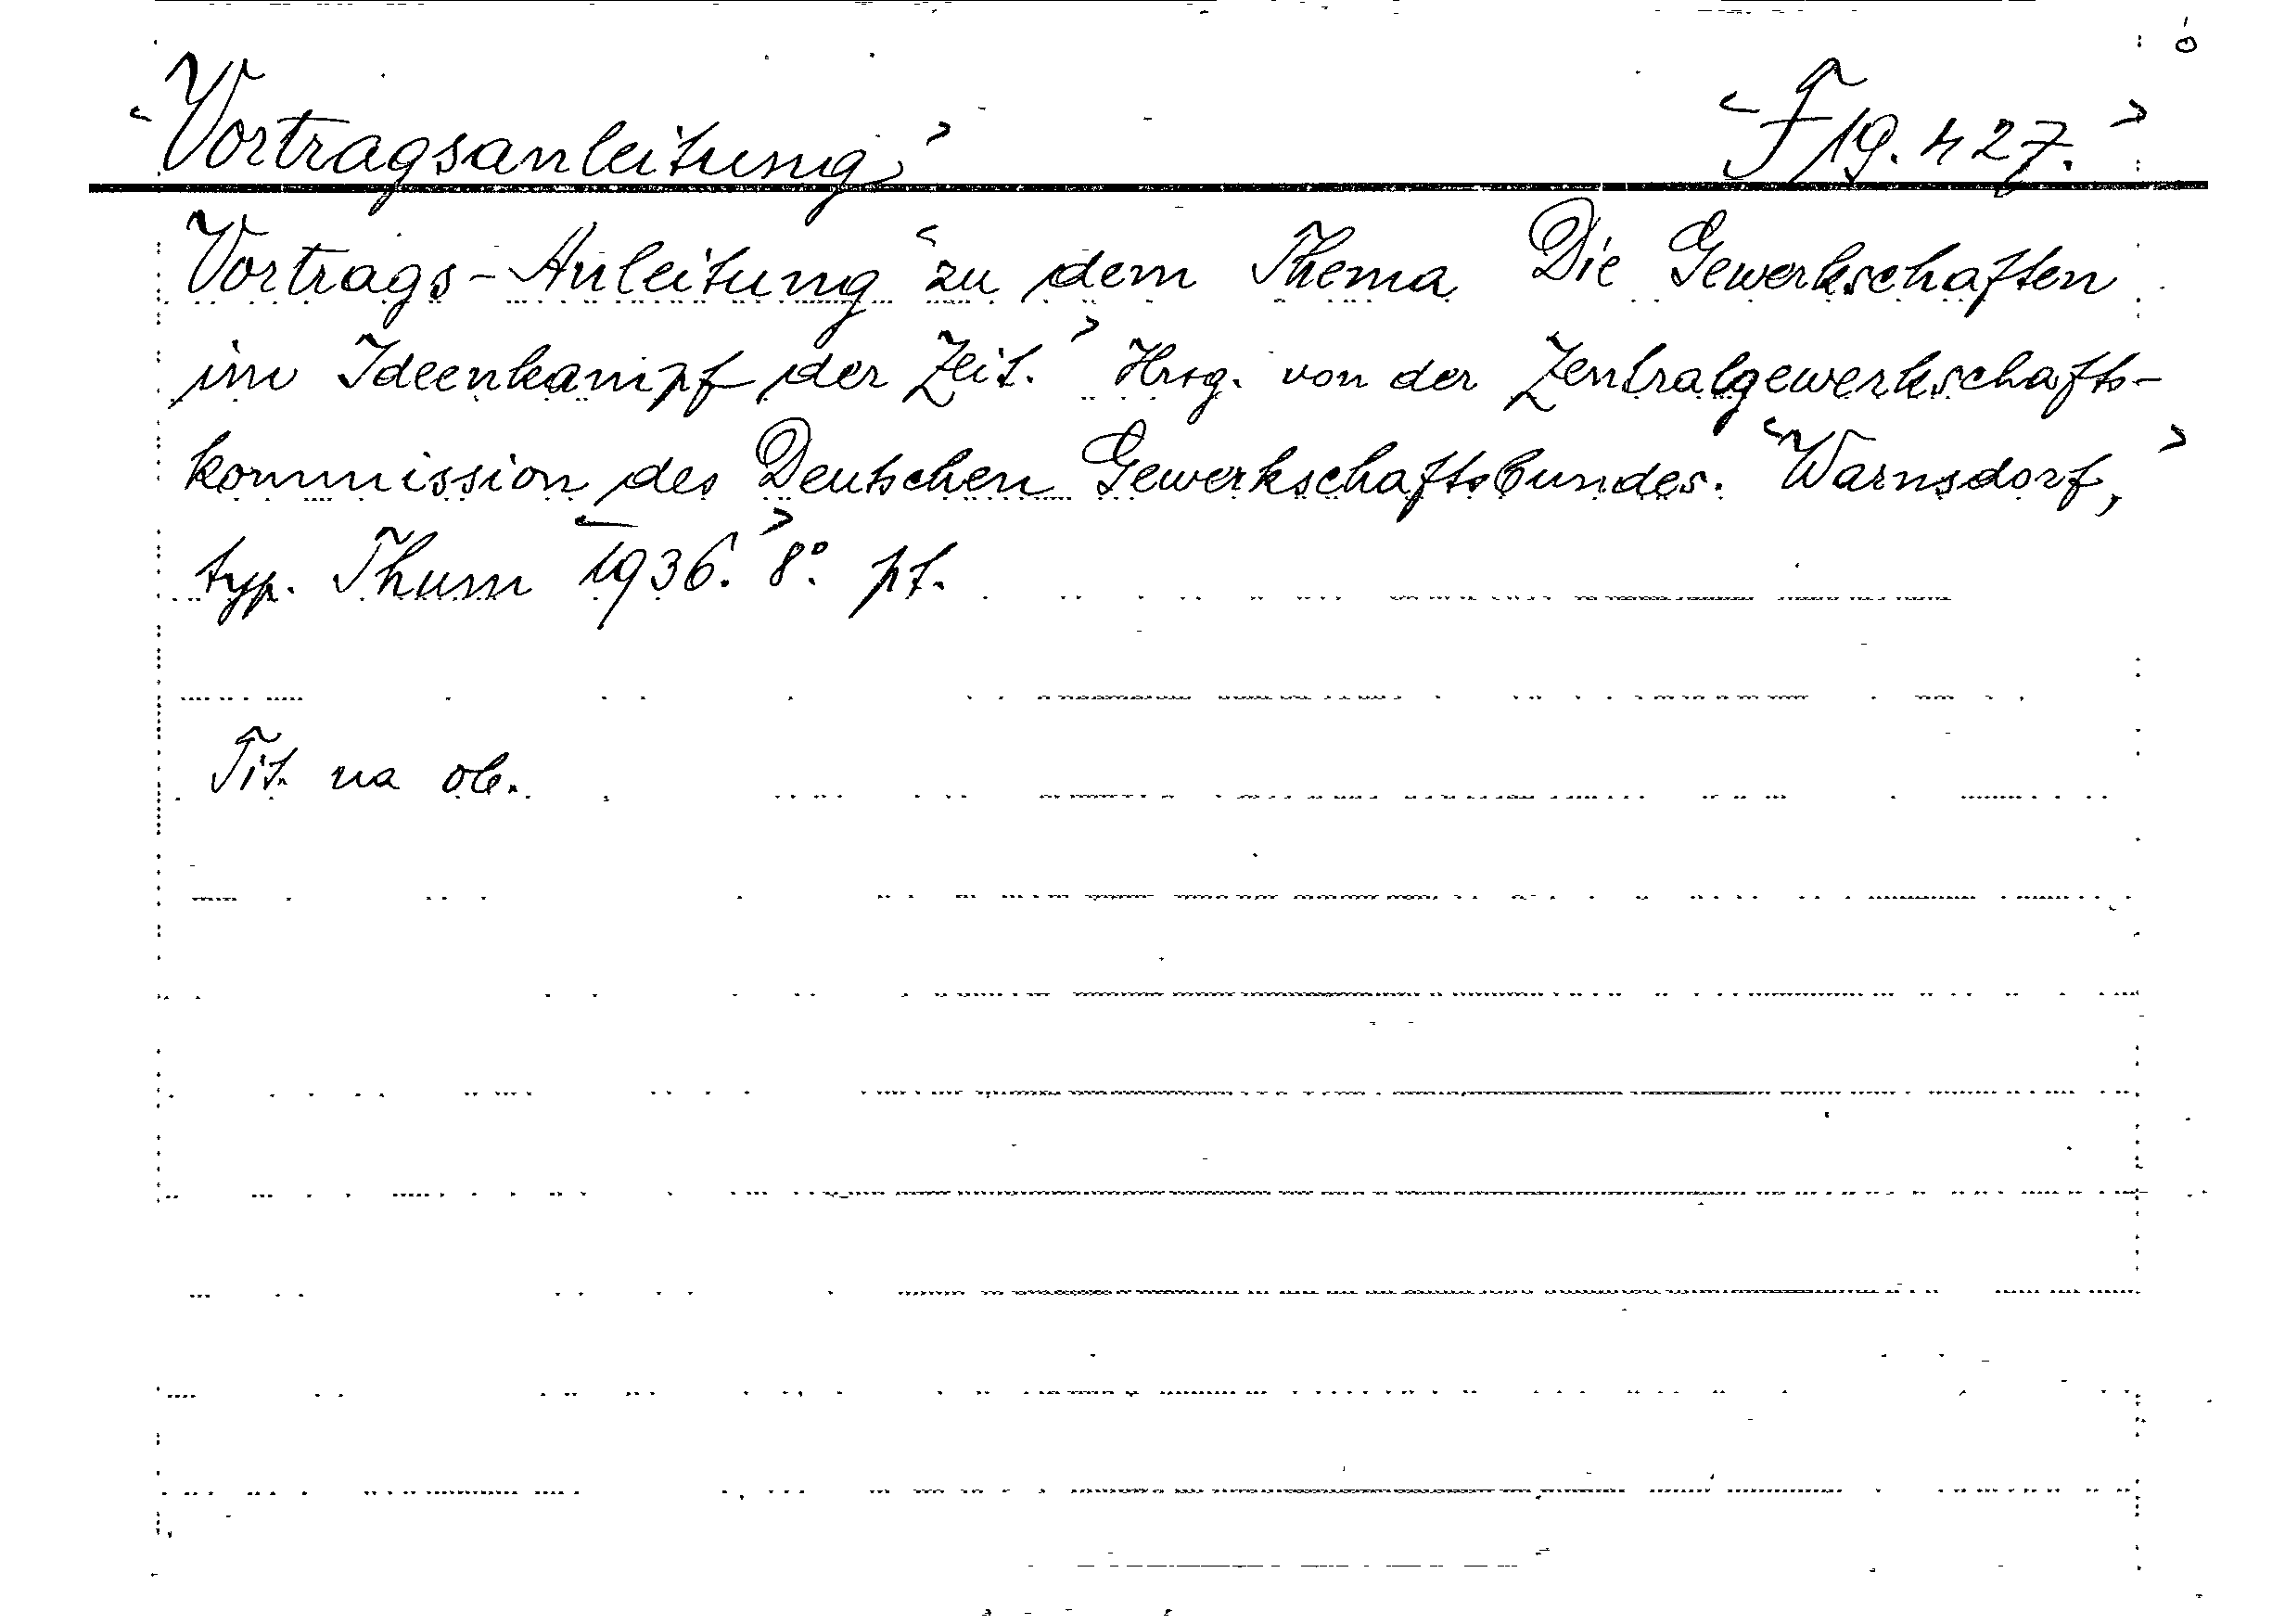 <Vortragsanleitung> <F 19.427.>
Vortrags-Anleitung <zu dem Thema Die Gewerkschaften
im Ideenkampf der Zeit.> Hrsg. von der Zentralgewerkschafts-
kommission des Deutschen Gewerkschaftsbundes. <Warnsdorf,>
typ. Thum <1936.> 8°. pt.
Tit. na ob.